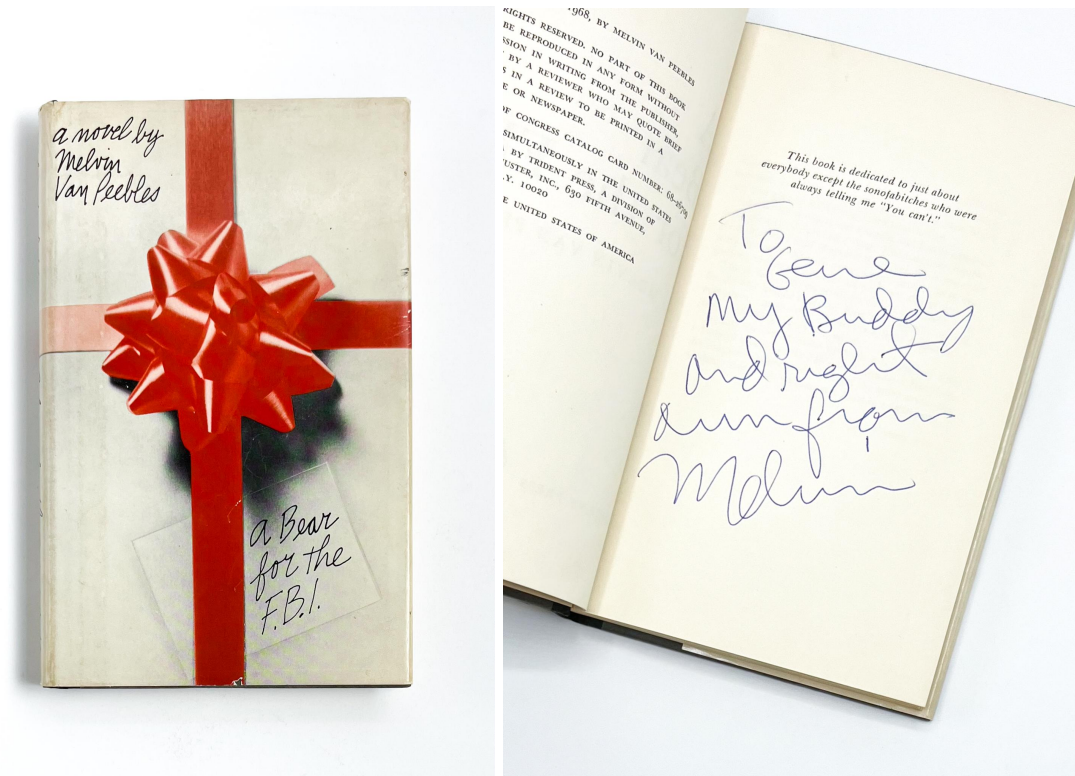 a novel by
Melvin
Van Peebles
a Bear
for the
F.B.I.
1968, BY MELVIN VAN PEEBLES
RIGHTS RESERVED. NO PART OF THIS BOOK
BE REPRODUCED IN ANY FORM WITHOUT
SSION IN WRITING FROM THE PUBLISHER,
BY A REVIEWER WHO MAY QUOTE BRIEF
S IN A REVIEW TO BE PRINTED IN A
E OR NEWSPAPER.
OF CONGRESS CATALOG CARD NUMBER:
SIMULTANEOUSLY IN THE UNITED STATES
BY TRIDENT PRESS, A DIVISION OF
USTER, INC., 630 FIFTH AVENUE,
.Y. 10020
E UNITED STATES OF AMERICA
This book is dedicated to just about
everybody except the sonofabitches who were
always telling me "You can't."
To
Gene
My Buddy
and right
arm from
Melvin